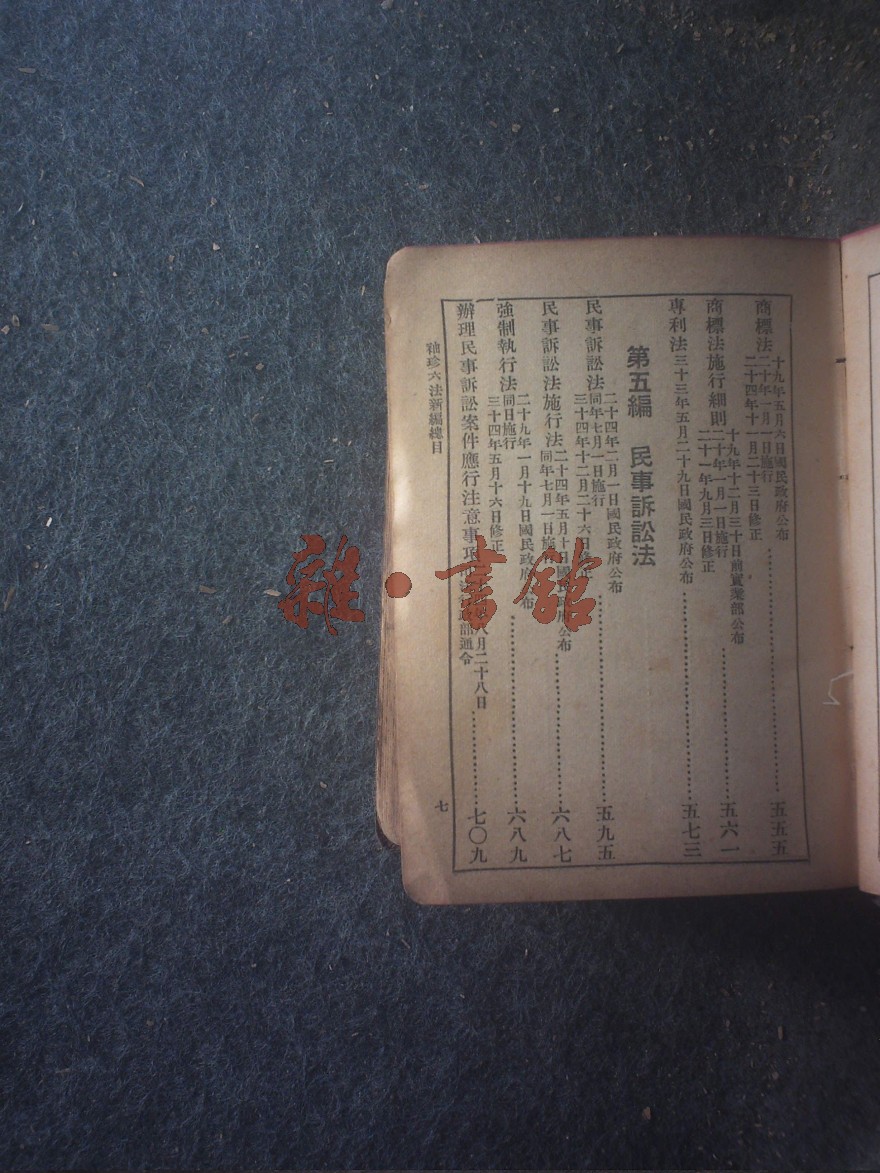 商標法
十九年五月六日國民政府公布
二十年一月一日施行
二十四年十一月二十三日修正
五五五
商標法施行細則
十九年十二月三十日前實業部公布
二十年一月一日施行
二十一年九月三日修正
五六一
專利法三十三年五月二十九日國民政府公布
五七三
第五編 民事訴訟法
民事訴訟法
二十四年二月一日國民政府公布
同年七月一日施行
三十四年十二月二十六日修正
五九五
民事訴訟法施行法
二十四年五月十日國民政府公布
同年七月一日施行
六八七
強制執行法
二十九年一月十九日國民政府公布
同日施行
三十四年五月十六日修正
六八九
辦理民事訴訟案件應行注意事項
八月二十八日
部通令
七〇九
袖珍六法新編總目
七
雜·書館